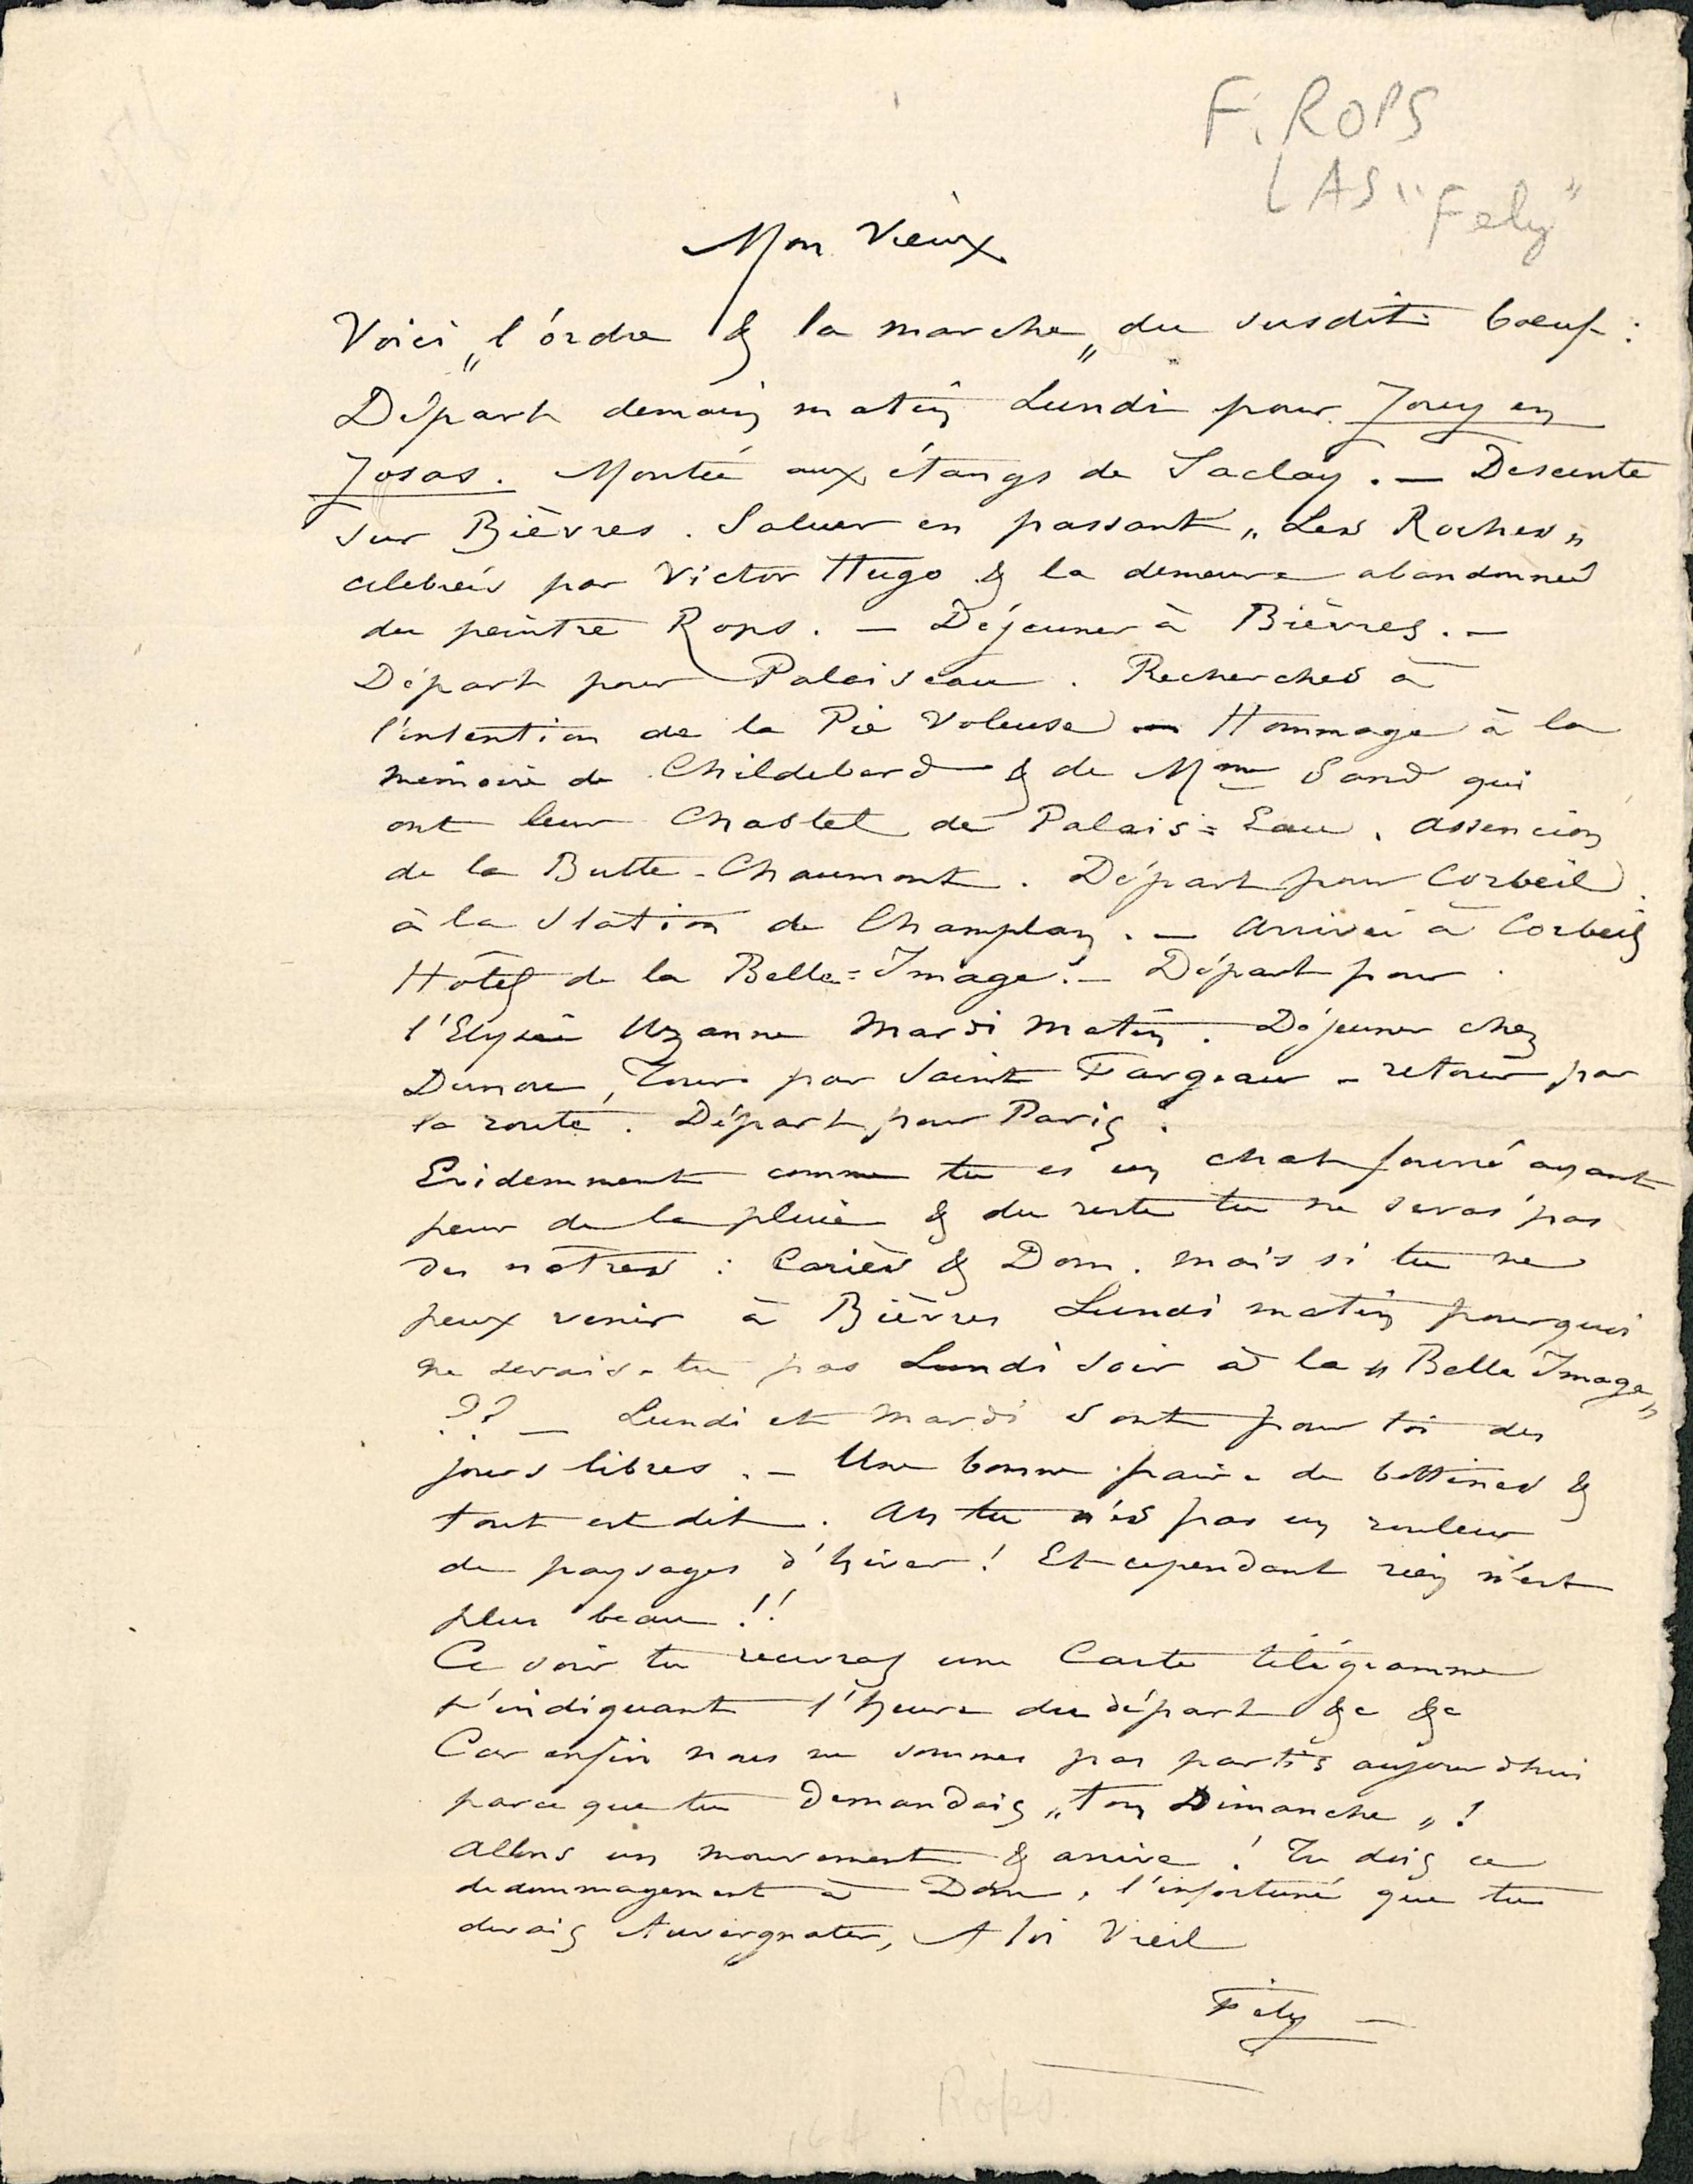 F. ROPS
LAS "Fely"
Mon Vieux
Voici „l'ordre & la marche„ du susdit boeuf :
Départ demain matin Lundi pour Jouy en
Josas. Montée aux étangs de Saclay. — Descente
sur Bièvres. Saluer en passant „Les Roches„
célébrées par Victor Hugo & la demeure abandonnée
du peintre Rops. — Déjeuner à Bièvres. —
Départ pour Palaiseau. Recherches à
l'intention de la Pie Voleuse — Hommage à la
mémoire de Childeberd & de Mme Sand qui
ont leur Chastel de Palais=Eau. Assencion
de la Butte-Chaumont. Départ pour Corbeil
à la Station de Champlan. — Arrivée à Corbeil
Hôtel de la Belle=Image. — Départ pour
l'Elysée Uzanne Mardi matin. Déjeuner chez
Tour par Saint Fargeau - retour par
la route. Départ pour Paris.
Evidemment comme tu es un chat fourré ayant
peur de la pluie & du reste tu ne seras pas
des nôtres : Cariès & Dom. mais si tu ne
peux venir à Bièvres Lundi matin pourquoi
ne serais-tu pas Lundi soir à la „Belle Image„
?? — Lundi et Mardi sont pour toi des
jours libres. — Une bonne paire de bottines &
tout est dit. Ah tu n'es pas un rouleur
de paysages d'hiver ! Et cependant rien n'est
plus beau !!
Ce soir tu recevras une Carte télégramme
t'indiquant l'heure du départ &c &c
Car enfin nous ne sommes pas partis aujourdhui
parce que tu demandais „ton Dimanche„ !
Allons un mouvement & arrive ! Tu dois ce
dedommagement à Dom, l'infortuné que tu
devais Auvergnater, A toi Vieil
Fély —
Rops